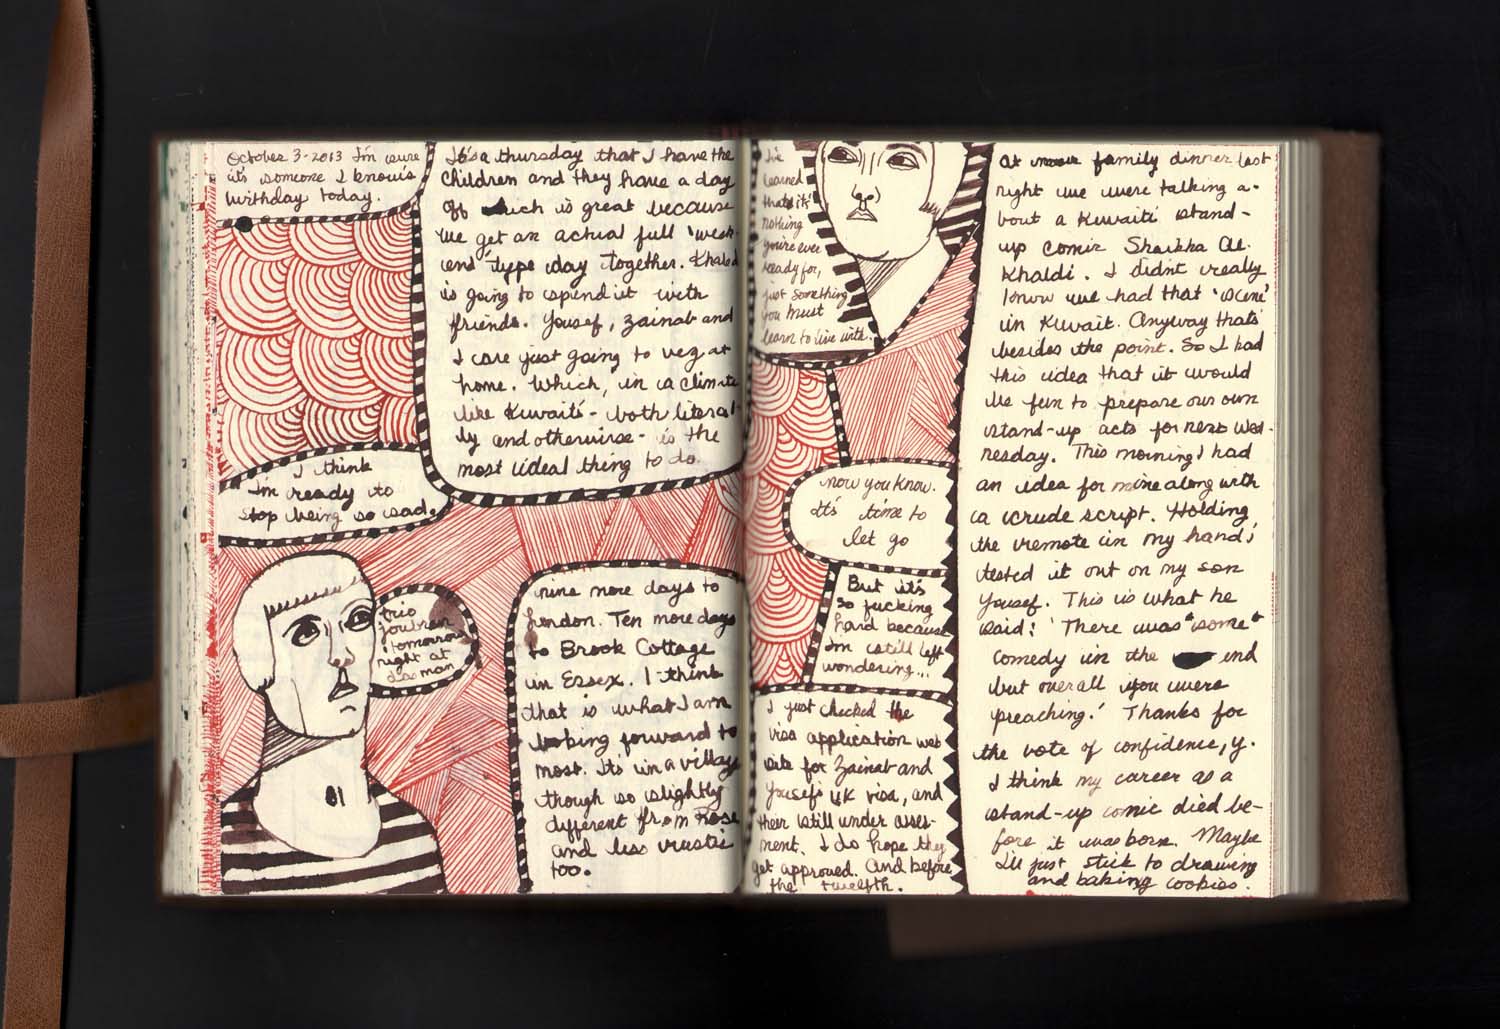 October 3-2013 I'm sure
it's someone I know's
birthday today.
It's a thursday that I have the
children and they have a day
off which is great because
we get an actual full 'week-
end' type day together. Khaled
is going to spend it with
friends. Yousef, Zainab and
I are just going to veg at
home. Which, in a climate
like Kuwait's - both literal-
ly and otherwise - is the
most ideal thing to do.
I think
I'm ready to
stop being so sad.
trio
journan
tomorrow
right at
nine more days to
London. Ten more days
to Brook Cottage
in Essex. I think
that is what I am
looking forward to
most. It's in a village
though so slightly
different from
and less rustic
too.
I've
learned
that it's
nothing
you're ever
ready for,
just something
you must
learn to live with.
now you know.
It's time to
let go
But it's
so fucking
hard because
I'm still left
wondering...
I just checked the
visa application web
site for Zainab and
Yousef's UK visa, and
their still under assess-
ment. I do hope they
get approved. And before
the twelfth.
At our family dinner last
night we were talking a-
bout a Kuwaiti stand-
up comic Shaikha Al-
Khaldi. I didn't really
know we had that 'scene'
in Kuwait. Anyway thats
besides the point. So I had
this idea that it would
be fun to prepare our own
stand-up acts for next Wed-
nesday. This morning I had
an idea for mine along with
a crude script. Holding
the remote in my hand,
tested it out on my son
Yousef. This is what he
said: 'There was *some*
comedy in the end
but overall you were
preaching.' Thanks for
the vote of confidence, Y.
I think my career as a
stand-up comic died be-
fore it was born. Maybe
I'll just stick to drawing
and baking cookies.